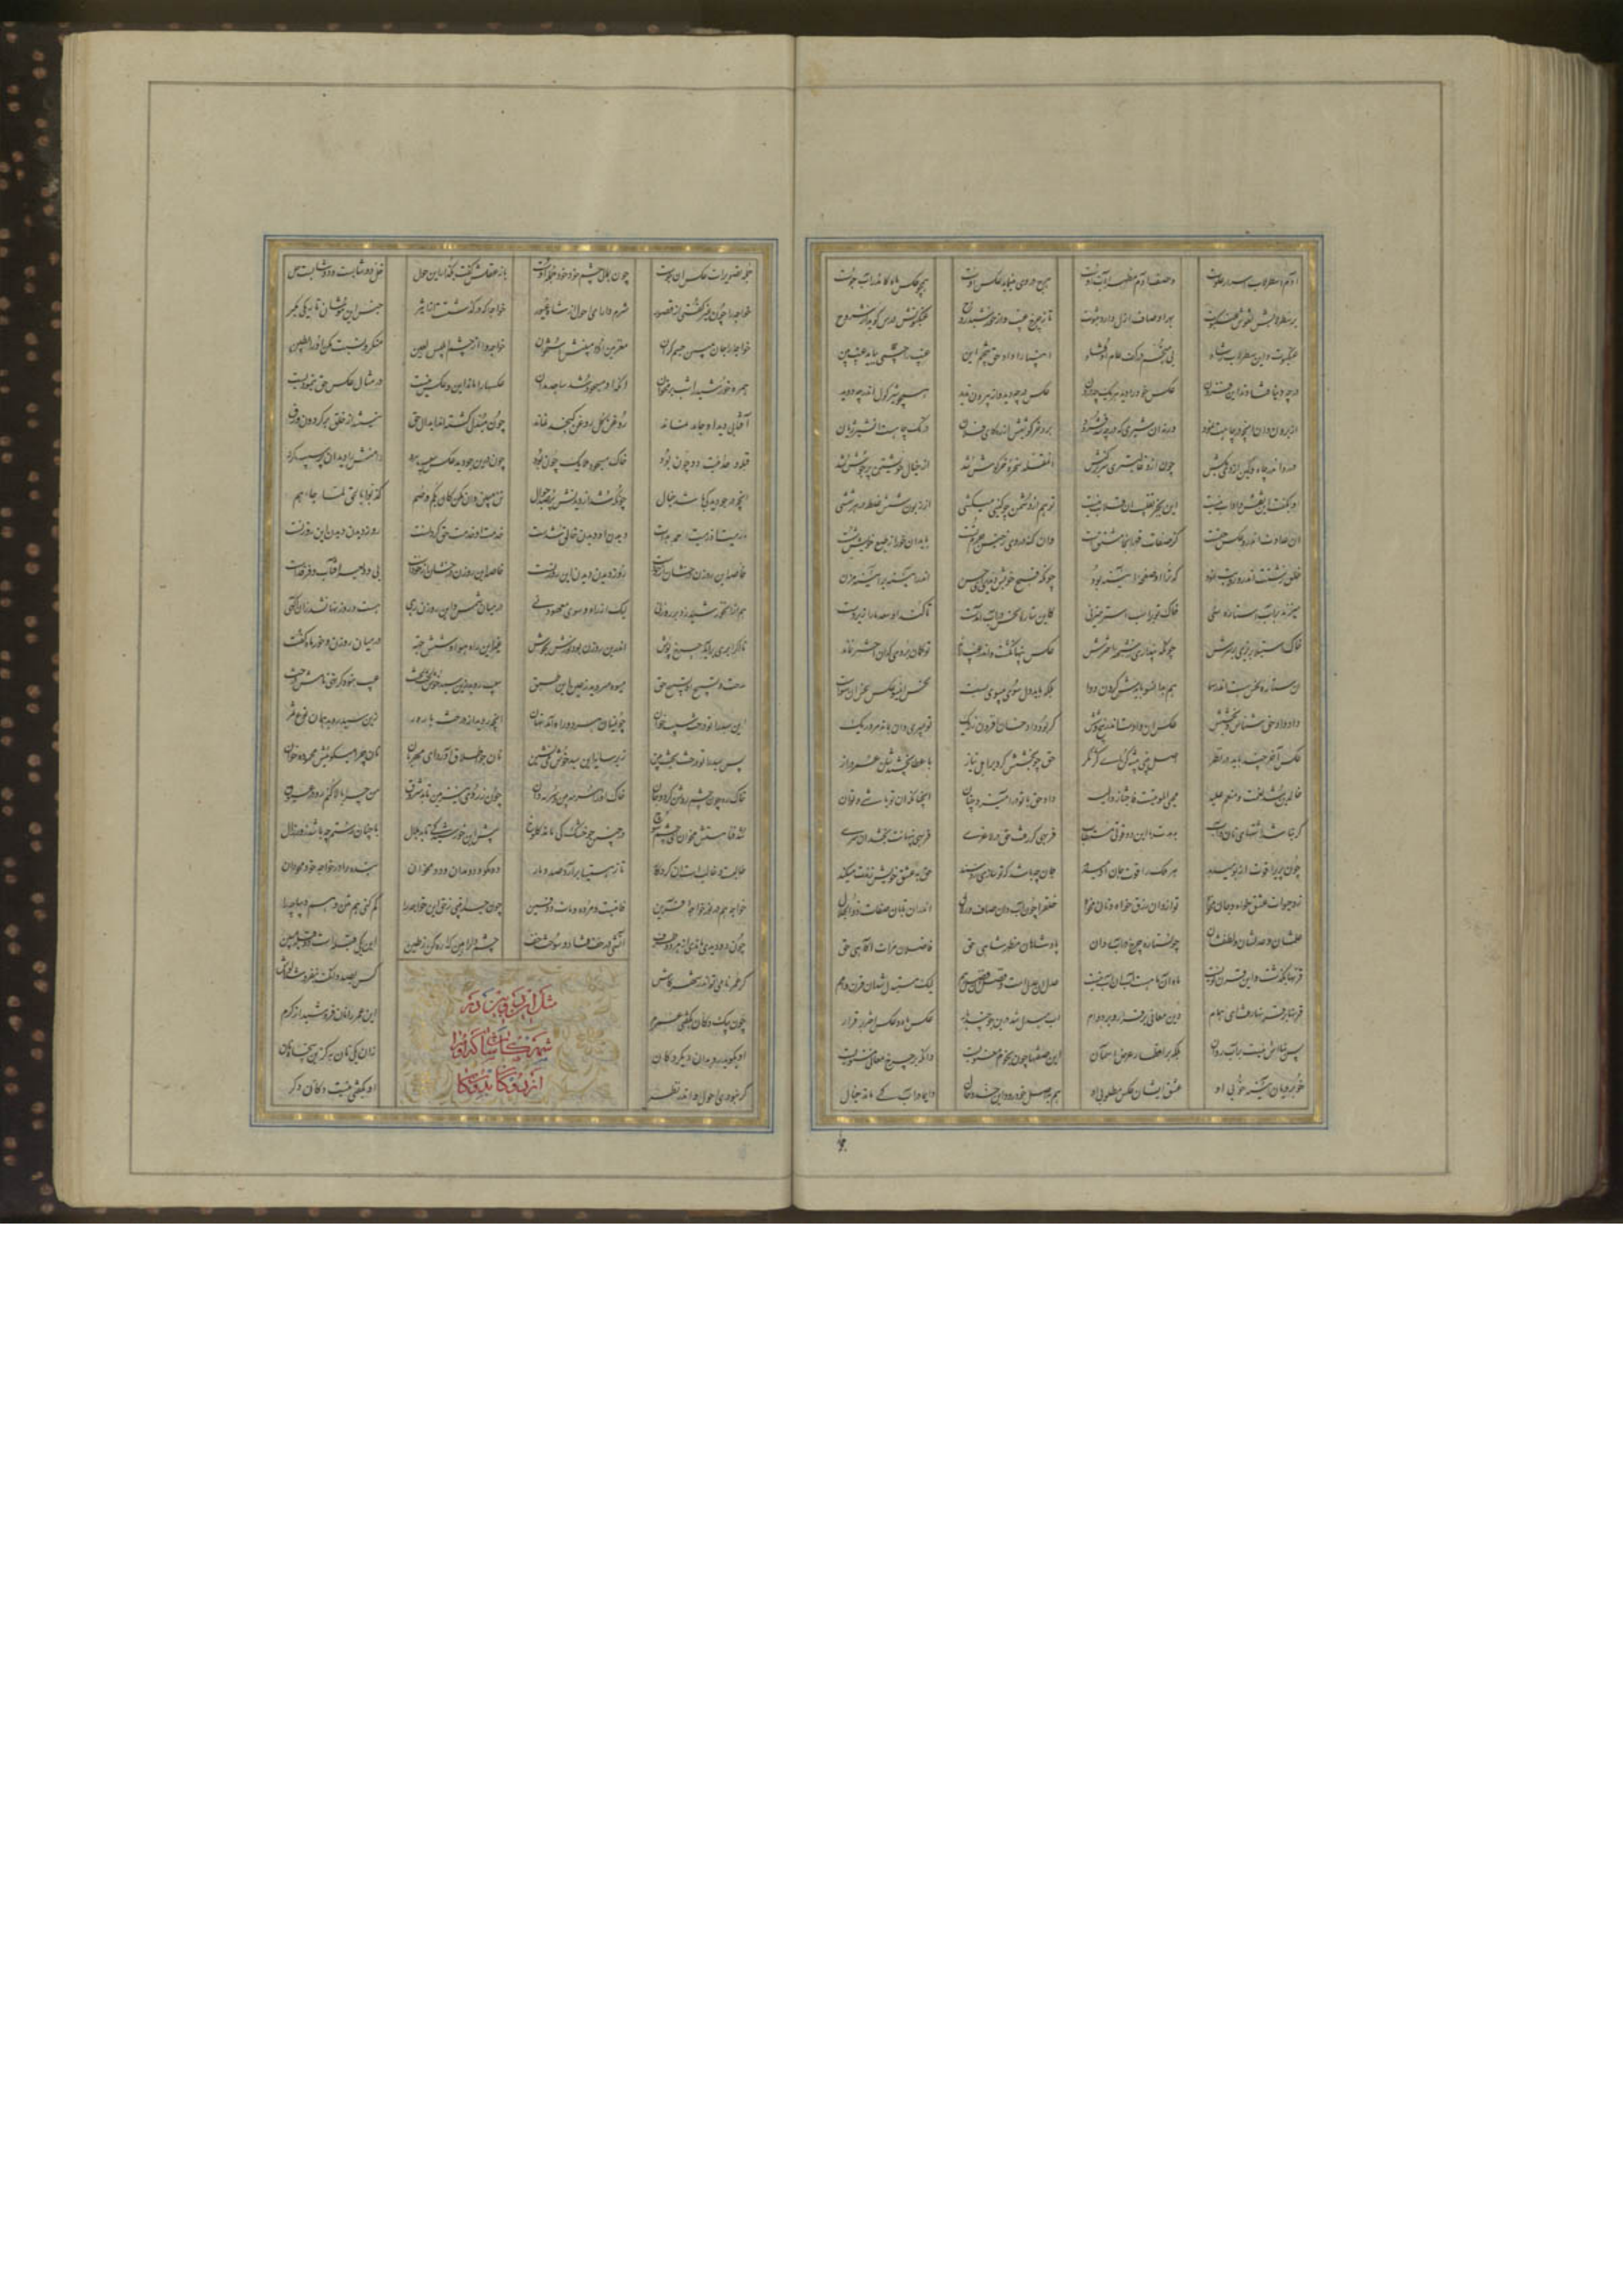 آدم اسطرلاب اسرار علوست وصف آدم مظهر آیات اوست هرچه در وی مینماید عکس اوست همچو عکس ماه کاندر آب جوست
بر سطرلابش نقوش عنکبوت بهر اوصاف ازل دارد ثبوت تا ز چرخ غیب وز خورشید روح عنکبوتش درس گوید از شروح
عنکبوت و این سطرلاب رشاد بی منجم در کف عام اوفتاد انبیا را داد حق تنجیم این غیب را چشمی بباید غیب بین
در چه دنیا فتادند این قرون عکس خود را دید هر یک چه درون عکس در چه دید و از بیرون ندید همچو شیر گول اندر چه دوید
از برون دان آنچه در چاهت نمود ورنه آن شیری که در چه شد فرود برد خرگوشیش از ره کای فلان در تک چاهست آن شیر ژیان
در رو اندر چاه و کین از وی بکش چون ازو غالبتری سر بر کنش آن مقلد سخره خرگوش شد از خیال خویشتن پر جوش شد
او نگفت این نقش داد آب نیست این بجز تقلیب آن قلاب نیست تو هم از دشمن چو کینی میکشی ای زبون شش غلط در هر ششی
آن عداوت اندرو عکس حقست کز صفات قهر آنجا مشتقست وان گنه در وی ز جنس جرم تست باید آن خو را ز طبع خویش شست
خلق زشتت اندرو رویت نمود که ترا او صفحه آیینه بود چونکه قبح خویش دیدی ای حسن اندر آیینه بر آیینه مزن
میزند بر آب استاره سنی خاک تو بر عکس اختر میزنی کاین ستاره نحس در آب آمدست تا کند او سعد ما را زیردست
خاک استیلا بریزی بر سرش چونکه پنداری ز شبهه اخترش عکس پنهان گشت و اندر غیب راند تو گمان بردی که آن اختر نماند
آن ستاره نحس هست اندر سما هم بدانسو بایدش کردن دوا بلکه باید دل سوی بیسوی بست نحس اینسو عکس نحس آن سوست
داد داد حق شناس و بخششش عکس آن دادست اندر پنج و شش گر بود داد خسان افزون ز ریگ تو بمیری وان بماند مرده ریگ
عکس آخر چند پاید در نظر اصل بینی پیشه کن ای کژنگر حق چو بخشش کرد بر اهل نیاز با عطا بخشیدشان عمر دراز
خالدین شد نعمت و منعم علیه محیی الموتیست فاجتازوا الیه داد حق با تو در آمیزد چو جان آنچنانکه آن تو باشی و تو آن
گر نماند اشتهای نان و آب بدهدت بی این دو قوتی مستطاب فربهی گر رفت حق در لاغری فربهی پنهانت بخشد آن سری
چون پری را قوت از بو میدهد هر ملک را قوت جان او میدهد جان چه باشد که تو سازی زو سند حق به عشق خویش زندت میکند
زو حیات عشق خواه و جان مخواه تو ازو آن رزق خواه و نان مخواه خلق را چون آب دان صاف و زلال اندر آن تابان صفات ذوالجلال
علمشان و عدلشان و لطفشان چون ستاره چرخ در آب روان پادشاهان مظهر شاهی حق فاضلان مرآت آگاهی حق
قرنها بگذشت و این قرن نویست ماه آن ماهست آب آن آب نیست عدل آن عدلست و فضل آن فضل هم لیک مستبدل شد آن قرن و امم
قرنها بر قرنها رفت ای همام وین معانی برقرار و بر دوام آب مبدل شد درین جو چند بار عکس ماه و عکس اختر برقرار
پس بنااش نیست بر آب روان بلکه بر اقطار عرض آسمان این صفتها چون نجوم معنویست دانکه بر چرخ معانی مستویست
خوبرویان آینه خوبی او عشق ایشان عکس مطلوبی او هم به اصل خود رود این خد و خال دایما در آب کی ماند خیال
جمله تصویرات عکس آب جوست چون بمالی چشم خود خود جمله اوست باز عقلش گفت بگذار این حول خل دوشابست و دوشابست خل
خواجه را چون غیر گفتی از قصور شرم دار ای احول از شاه غیور خواجه را که در گذشتست از اثیر جنس این موشان تاریکی مگیر
خواجه را جان بین مبین جسم گران مغز بین او را مبینش استخوان خواجه را از چشم ابلیس لعین منگر و نسبت مکن او را بطین
همره خورشید را شب پر مخوان آنکه او مسجود شد ساجد مدان عکسها را ماند این و عکس نیست در مثال عکس حق بنمودنیست
آفتابی دید او جامد نماند روغن گل روغن کنجد نماند چون مبدل گشته اند ابدال حق نیستند از خلق بر گردان ورق
قبله وحدانیت دو چون بود خاک مسجود ملایک چون بود چون درین جو دید عکس سیب مرد دامنش را دید آن پر سیب کرد
آنچه در جو دید کی باشد خیال چونکه شد از دیدنش پر صد جوال تن مبین وان مکن کان بکم و صم کذبوا بالحق لما جاءهم
ما رمیت اذ رمیت احمد بدست دیدن او دیدن خالق شدست خدمت او خدمت حق کردنست روز دیدن دیدن این روزنست
خاصه این روزن درخشان از خودست روز دیدن دیدن این روزنست خاصه این روزن درخشان از خودست نی ودیعه آفتاب و فرقدست
هم از آن خورشید زد بر روزنی لیک از راه و سوی معهود نی در میان شمس و این روزن رهی هست روزنها نشد زان آگهی
تا اگر ابری برآید چرخ پوش اندرین روزن بود نورش بجوش غیر این راه هوا و شش جهت در میان روزن و خور مألفت
مدحت و تسبیح او تسبیح حق میوه میروید ز عین این طبق سیب روید زین سبد خوش لخت لخت عیب نبود گر نهی نامش درخت
این سبد را تو درخت سیب خوان کز میان هر دو راه آمد نهان آنچه روید از درخت بارور زین سبد روید همان نوع ثمر
پس سبد را تو درخت بخت بین زیر سایه این سبد خوش می نشین نان چو اطلاق آورد ای مهربان نان چرا میگوییش محموده خوان
خاک ره چون چشم روشن کرد و جان خاک او را سرمه بین و سرمه دان چون ز روی این زمین تابد شروق من چرا بالا کنم رو در عیوق
شد فنا هستش مخوان ای چشم شوخ در چنین جو خشک کی ماند کلوخ پیش این خورشید کی تابد هلال با چنان رستم چه باشد زور زال
طالبست و غالبست آن کردگار تا ز هستیها برآرد او دمار دو مگو و دو مدان و دو مخوان بنده را در خواجه خود محو دان
خواجه هم در نور خواجه آفرین فانیست و مرده و مات و دفین چون جدا بینی ز حق این خواجه را گم کنی هم متن و هم دیباچه را
چون دو دیدی ماندی از هر دو طرف آتشی در خف فتاد و سوخت خف چشم و دل را هین گذاره کن ز طین این یکی قبله است دو قبله مبین
گر عمر نامی تو اندر شهر کاش کس بنفروشد بصد دانگت لواش
چون بیک دکان بگفتی عمرم این عمر را نان فروشید از کرم
او بگوید رو بدان دیگر دکان زان یکی نان به کزین پنجاه نان
گر نبودی احول او اندر نظر او بگفتی نیست دکان دگر